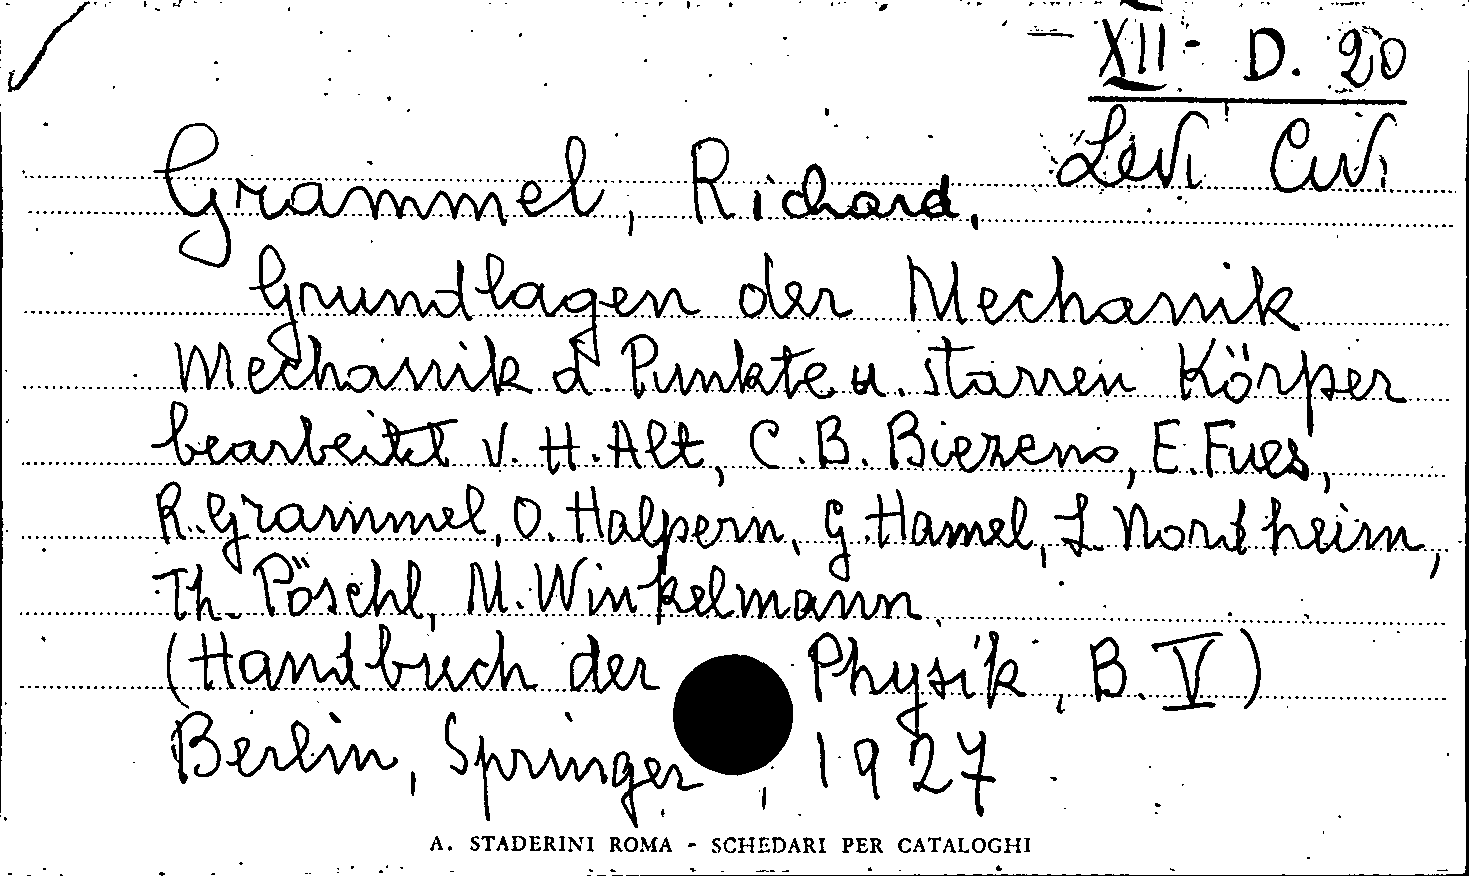 XII - D. 20
Levi Civi
Grammel, Richard.
Grundlagen der Mechanik
Mechanik d. Punkte u. starren Körper
bearbeitet v. H. Alt, C. B. Biezeno, E. Fues,
R. Grammel, O. Halpern, G. Hamel, L. Nordheim,
Th. Pöschl, M. Winkelmann
(Handbuch der Physik, B. V)
Berlin, Springer, 1927
A. STADERINI ROMA - SCHEDARI PER CATALOGHI